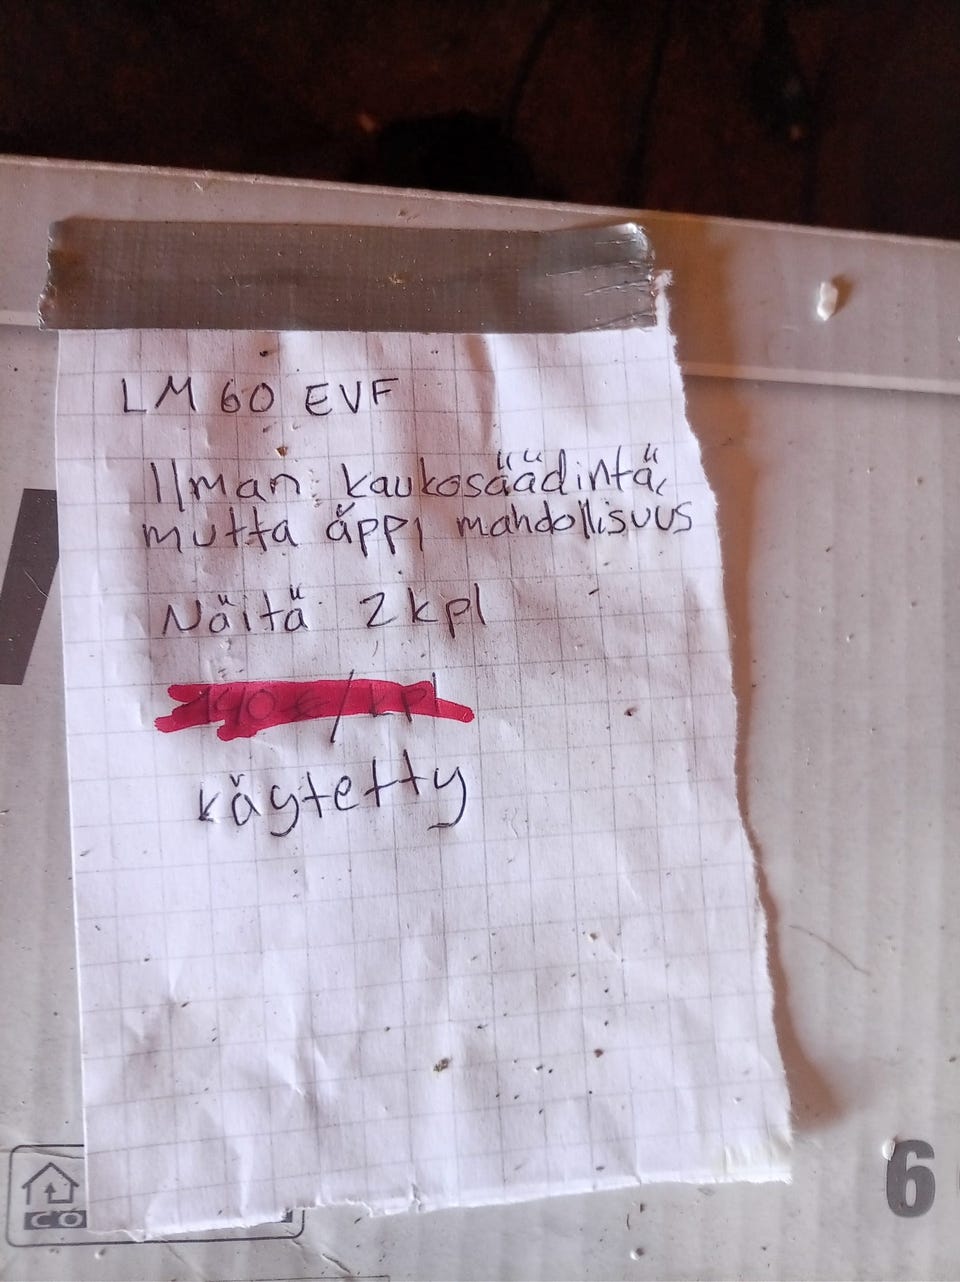 LM 60 EVF
Ilman kaukosäädintä,
mutta äppi mahdollisuus
Näitä 2 kpl
190 €/kpl
käytetty
CO
6